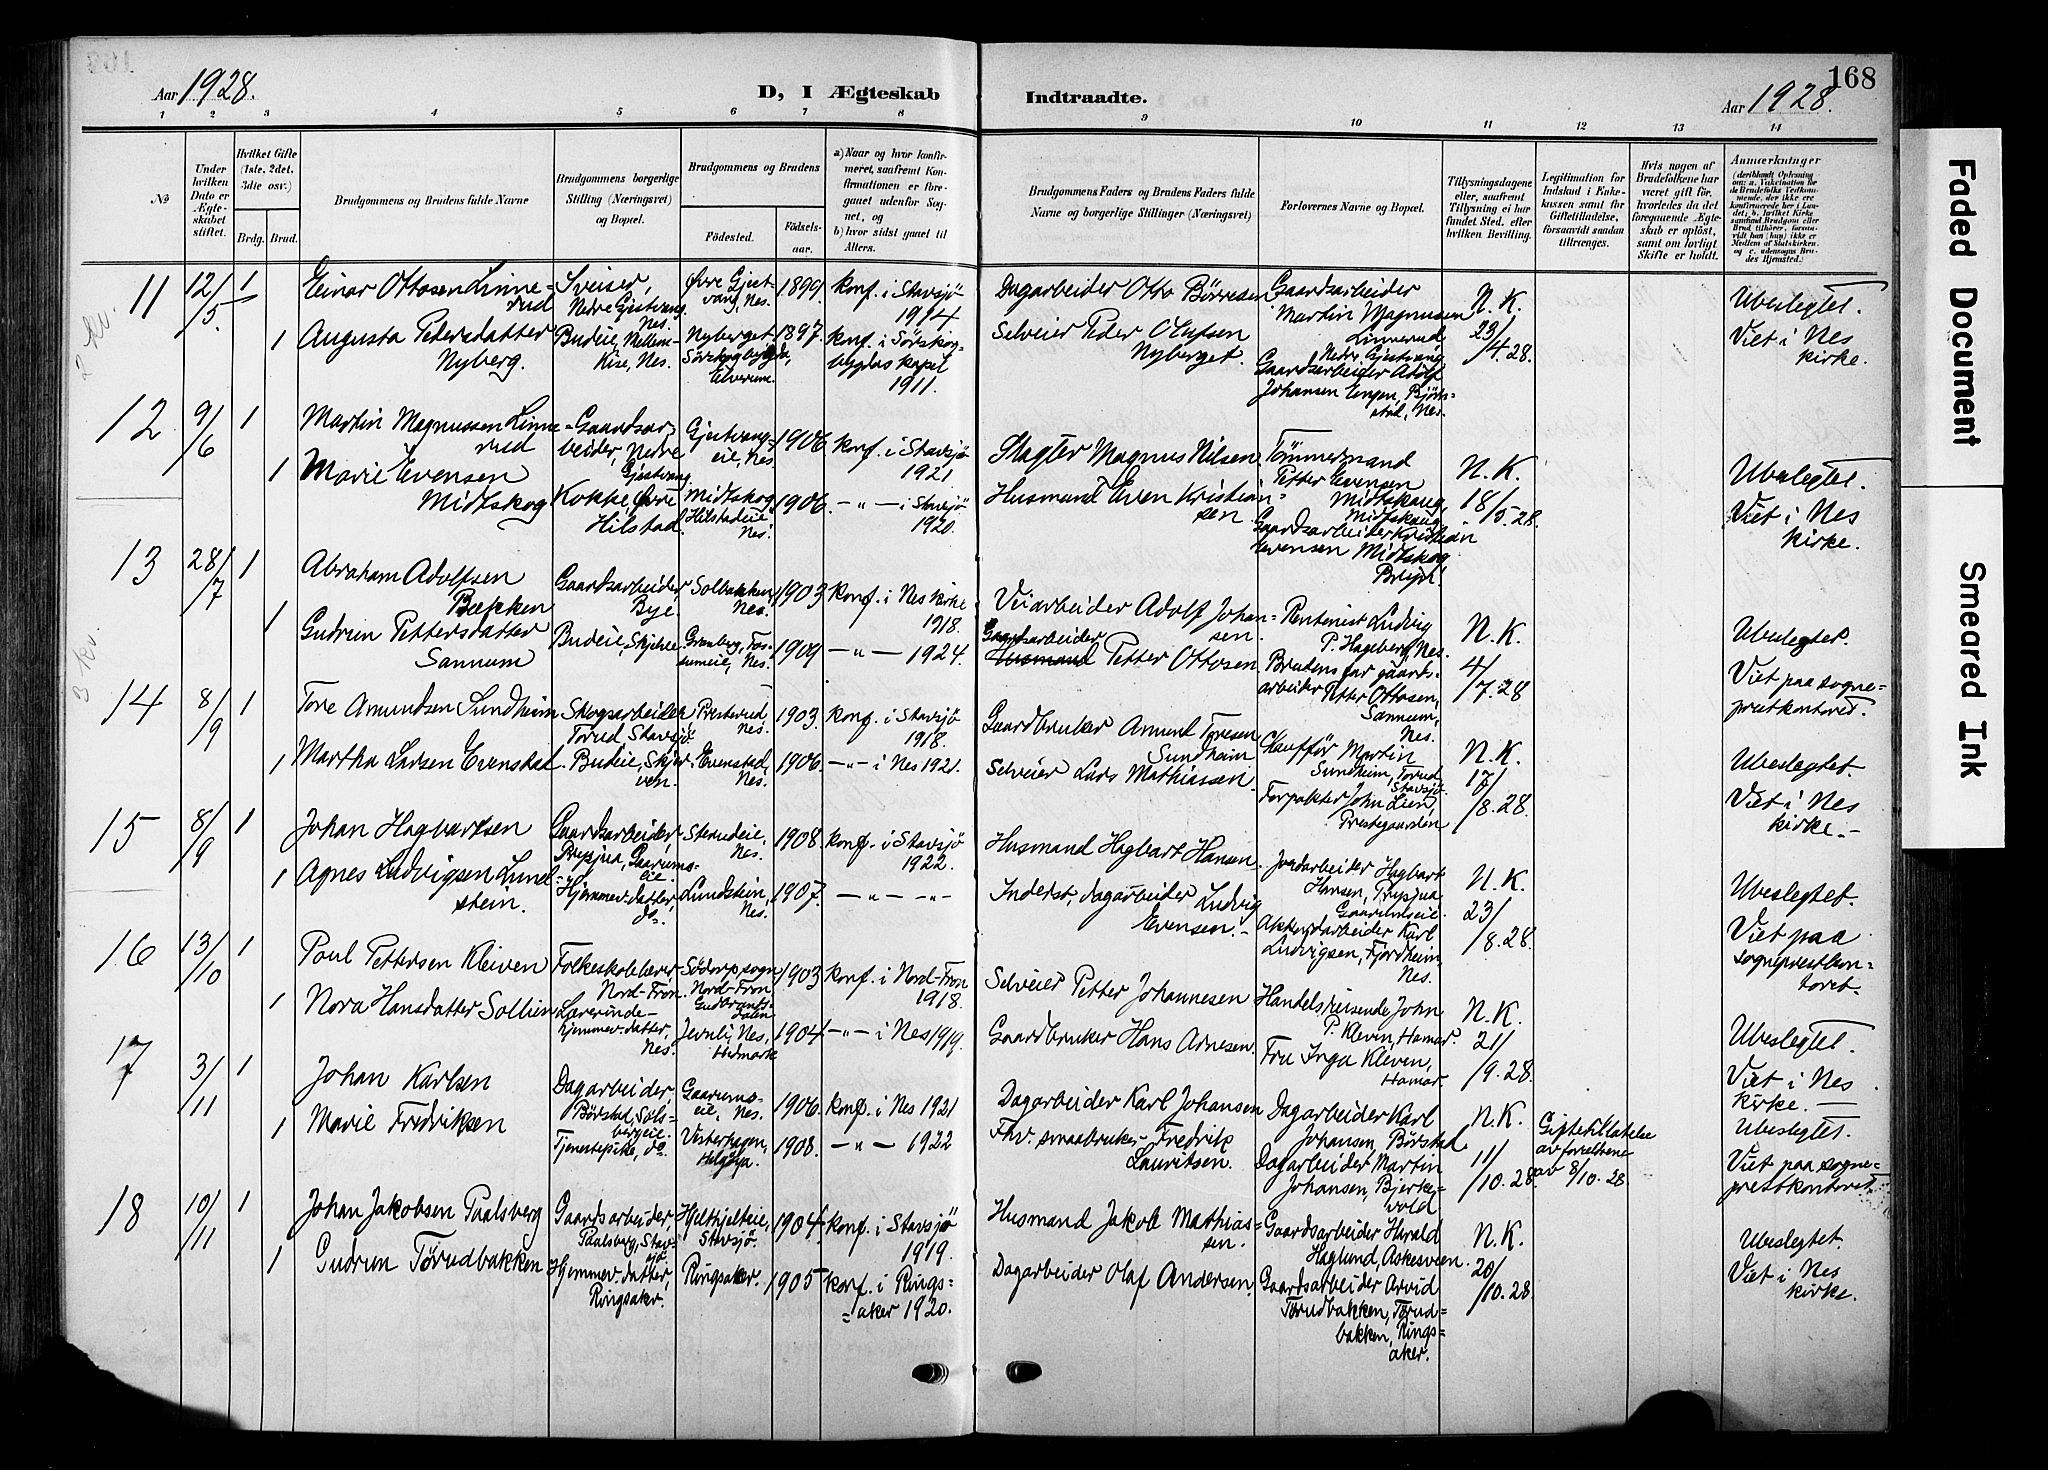 168
Aar 1928.
D, I Ægteskab
Indtraadte.
Aar 1928.
1 2 3 4 5 6 7 8 9 10 11 12 13 14
№
Under hvilken Dato er Ægteskabet stiftet.
Hvilket Gifte (1ste, 2det, 3die osv.)
Brdg. Brud.
Brudgommens og Brudens fulde Navne
Brudgommens borgerlige Stilling (Næringsvei) og Bopæl.
Brudgommens og Brudens
Fødested.
Fødselsaar.
a) Naar og hvor konfirmeret, saafremt Konfirmationen er foregaaet udenfor Sognet, og
b) hvor sidst gaaet til Alters.
Brudgommens Faders og Brudens Faders fulde Navne og borgerlige Stillinger (Næringsvei)
Forlovernes Navne og Bopæl.
Tillysningsdagene eller, saafremt Tillysning ei har fundet Sted, efter hvilken Bevilling.
Legitimation for Indskud i Enkekassen samt for Giftetilladelse, forsaavidt saadan tiltrænges.
Hvis nogen af Brudefolkene har været gift før, hvorledes da det foregaaende Ægteskab er opløst, samt om lovligt Skifte er holdt.
Anmærkninger
11 12/5 1 Einar Ottosen Linnerud Sveiser, Nedre Gjestvang, Nes. Øvre Gjestvang, Nes. 1899. konf. i Stavsjö 1914 Dagarbeider Otto Börresen Gaardsarbeider Martin Magnussen Linnerud Nedre Gjestvang N.K. 23/4.28. Ubeslegtet.
1 Augusta Pedersdatter Nyberg. Budeie, Mellem-Kise, Nes. Nyberget Sörskogbygda, Elverum. 1897. konf. i Sörskogbygdas kapel 1911. Selveier Peder Olufsen Nyberget. Gaardsarbeider Adolf Johansen Engen, Björnstad, Nes. Viet i Nes kirke.
12 9/6 1 Martin Magnussen Linnerud Gaardsarbeider, Nedre Gjestvang Gjestvangeie, Nes. 1906 konf. i Stavsjö 1921 Slagter Magnus Nilsen Tömmermand Petter Evensen Midtskaug, Midtskaug N.K. 18/5.28. Ubeslegtet.
1 Marie Evensen Midtskog Kokke, Øvre Hilstad. Midtskog Hilstadeie Nes. 1906. — „ — i Stavsjö 1920. Husmand Even Kristiansen Gaardsarbeider Kristian Evensen Midtskog Viet i Nes kirke.
13 28/7 1 Abraham Adolfsen Bækken Gaardsarbeider, Bye. Solbakken, Nes. 1903 konf. i Nes kirke 1918. Veiarbeider Adolf Johansen. Rentenist Ludvig P. Hageberg, Nes. N.K. 4/7.28 Ubeslegtet.
1 Gudrun Pettersdatter Sannum Budeie, Skjelve Granberg, Fossumeie, Nes. 1909 — „ — 1924. Gaardsarbeider Petter Ottosen Brudens far gaardsarbeider Petter Ottosen, Sannum, Nes. Viet paa sogneprestkontoret.
14 8/9 1 Tore Amundsen Sundheim Skogsarbeider Torud Stavsjö. Presterud Nes. 1903. konf. i Stavsjö 1918. Gaardbruker Amund Toresen Sundheim Chauffør Martin Sundheim, Torud Stavsjö. N.K. 17/8.28. Ubeslegtet.
1 Martha Larsen Evenstad. Budeie, Evenstad, Nes. 1906. — „ — i Nes 1921. Selveier Lars Mathiassen. Forpakter John Lien, Prestegaarden Viet i Nes kirke.—
15 8/9 1 Johan Hagbartsen Gaardsarbeider, Prysjua, Gaarumseie Strandeie, Nes. 1908. konf. i Stavsjö 1922. Husmand Hagbart Hansen Jordarbeider Hagbart Hansen, Prysjua Gaarumseie. N.K. 23/8.28. Ubeslegtet.
1 Agnes Ludvigsen Lundstein. Hjemmev. datter, do. Lundstein, Nes. 1907. — „ — „ — Inderst, dagarbeider Ludvig Evensen.— Akkordarbeider Karl Ludvigsen, Fjordheim, Nes. Viet paa sogneprestkontoret.
16 13/10 1 Poul Pettersen Kleiven Folkeskolelærer Nord-Fron. Södorp sogn Nord-Fron Gudbrandsdalen 1903 konf. i Nord-Fron 1918. Selveier Petter Johannesen Handelsreisende John P. Kleven, Hamar. N.K. 21/9.28. Ubeslegtet.
1 Nora Hansdatter Sollien Lærerinde hjemmev. datter, Nes. Jevnli, Nes, Hedmark 1904 — „ — i Nes 1919. Gaardbruker Hans Arnesen. Fru Inga Kleven, Hamar. Viet i Nes kirke.—
17 3/11 1 Johan Karlsen Dagarbeider, Börstad, Solsbergeie. Gaarumseie, Nes. 1906. konf. i Nes 1921 Dagarbeider Karl Johansen Dagarbeider Karl Johansen, Börstad N.K. 11/10.28. Giftetillatelse av forældrene av 8/10.28 Ubeslegtet.
1 Marie Fredriksen Tjenestepike, do. Vesterhagen, Helgöya. 1908. — „ — 1922 Fhv. smaabruker Fredrik Lauritsen. Dagarbeider Martin Johansen, Bjerkevold Viet paa sogneprestkontoret
18 10/11 1 Johan Jakobsen Paalsberg Gaardsarbeider, Paalsberg, Stavsjö Hjelthjelteie, Stavsjö. 1904 konf. i Stavsjö 1919. Husmand Jakob Mathiassen. Gaardsarbeider Harald Haglund, Askesveen. N.K. 20/10.28. Ubeslegtet.
1 Gudrun Törudbakken Hjemmev. datter, Ringsaker. Ringsaker. 1905 konf. i Ringsaker 1920. Dagarbeider Olaf Andersen. Gaardsarbeider Arvid Törudbakken, Törudbakken, Ringsaker. Viet i Nes kirke.
2 kr.
3 kr.
Faded Document
Smeared Ink